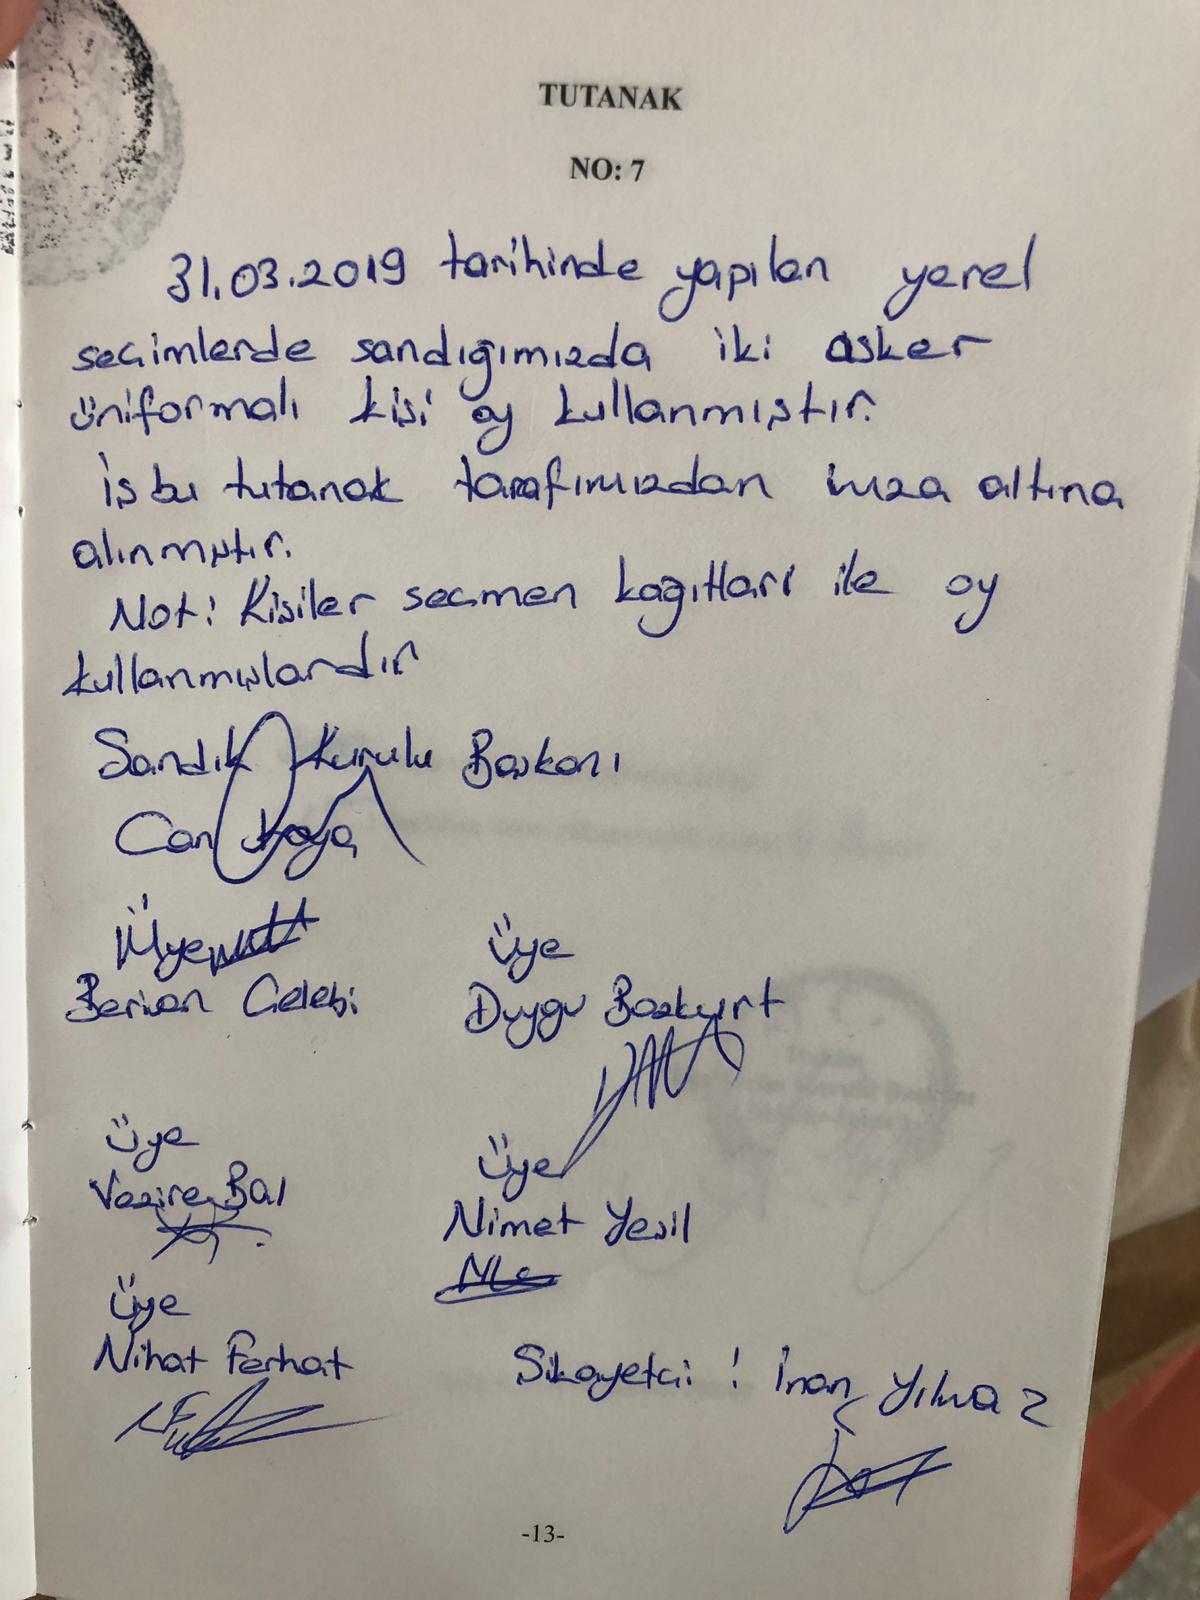 TUTANAK
NO: 7
31.03.2019 tarihinde yapılan yerel
seçimlerde sandığımızda iki asker
üniformalı kişi oy kullanmıştır.
İş bu tutanak tarafımızdan imza altına
alınmıştır.
Not: Kişiler seçmen kağıtları ile oy
kullanmışlardır
Sandık Kurulu Başkanı
Can Kaya
Üye
Üye
Berivan Çelebi
Duygu Bozkurt
Üye
Üye
Vezire Bal
Nimet Yeşil
Üye
Nihat Ferhat
Şikayetçi : İnan Yılmaz
-13-